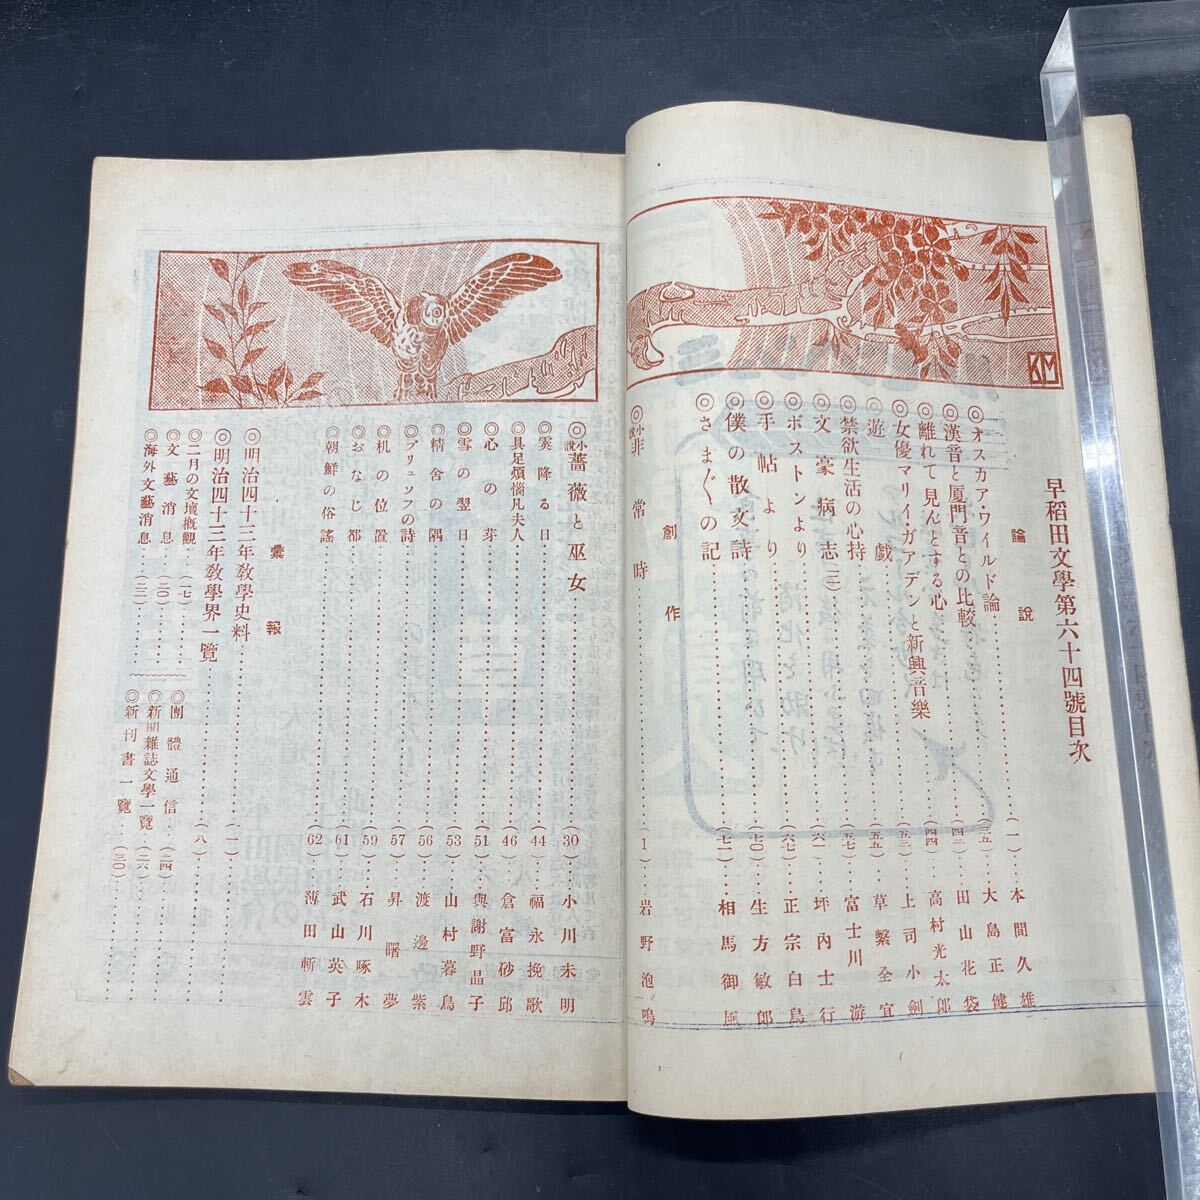 早稻田文學第六十四號目次
論說
◎オスカア・ワイルド論………(一)…本間久雄
◎漢音と厦門音との比較………(三五)…大島正健
◎離れて見んとする心………(四三)…田山花袋
◎女優マリイ・ガアデンと新興音樂………(四四)…高村光太郎
◎遊戲………(五三)…上司小劍
◎禁欲生活の心持………(五五)…草繋全宜
◎文豪病志(二)………(五七)…富士川游
◎ボストンより………(六一)…坪內士行
◎手帖より………(六七)…正宗白鳥
◎僕の散文詩………(七〇)…生方敏郎
◎さまざまの記………(七一)…相馬御風
創作
◎小說 非常時………(1)…岩野泡鳴
◎小說 薔薇と巫女………30…小川未明
◎霙降る日………44…福永挽歌
◎具足煩惱凡夫人………46…倉富砂邱
◎心の芽………51…與謝野晶子
◎雪の翌日………53…山村暮鳥
◎精舍の隅………56…渡邊紫
◎アリュソフの詩………57…昇曙夢
◎机の位置………59…石川啄木
◎おなじ都………61…武山英子
◎朝鮮の俗謠………62…薄田斬雲
彙報
◎明治四十三年敎學史料………(一)
◎明治四十三年敎學界一覽………(八)
◎二月の文壇槪觀………(一七)
◎文藝消息………(二〇)
◎海外文藝消息………(二二)
◎團體通信………(二四)
◎新聞雜誌文學一覽………(二六)
◎新刊書一覽………(三〇)
KM